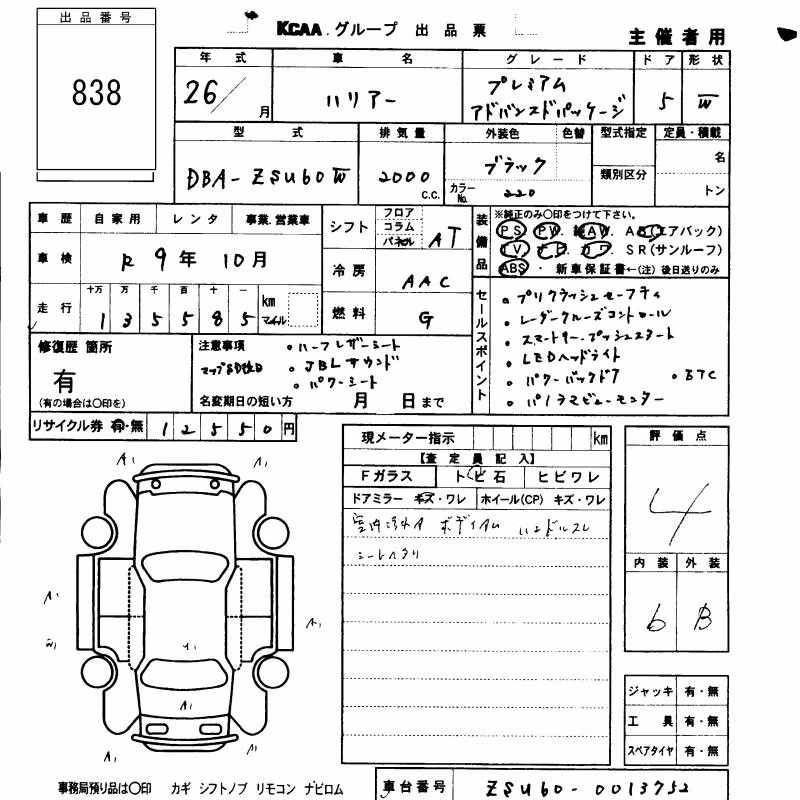 出品番号
838
KCAA グループ 出品票
主催者用
年式 車名 グレード ドア 形状
26/ 月 ハリアー プレミアム アドバンスドパッケージ 5 W
型式 排気量 外装色 色替 型式指定 定員・積載
類別区分
DBA-ZSU60W 2000 C.C. ブラック カラーNo. 220 名 トン
車歴 自家用 レンタ 事業.営業車
車検 R 9年 10月
走行 十万 万 千 百 十 一
135585 km マイル
シフト フロア コラム パネル AT
冷房 AAC
燃料 G
装備品 ※純正のみ〇印をつけて下さい。
PS PW AW (エアバック)
TV SR(サンルーフ)
ABS ・ 新車保証書←(注) 後日送りのみ
セールスポイント
・プリクラッシュセーフティ
・レーダークルーズコントロール
・スマートキー プッシュスタート
・LEDヘッドライト
・パワーバックドア ・ETC
・パノラマビューモニター
修復歴 箇所
有
(有の場合は〇印を)
注意事項 ・ハーフレザーシート
・JBLサウンド
・パワーシート
名変期日の短い方 月 日まで
リサイクル券 有・無 12550円
現メーター指示 km
【査定員記入】
Fガラス トビ石 ヒビワレ
ドアミラー キズ・ワレ ホイール(CP) キズ・ワレ
室内汚れA ボディAM ハンドルスレ
シートヘタリ
評価点
4
内装 外装
6 B
A1 A1
A1
W1
A1
U1
A1
A1 A1
ジャッキ 有・無
工具 有・無
スペアタイヤ 有・無
事務局預り品は〇印 カギ シフトノブ リモコン ナビロム
車台番号 ZSU60-0013752